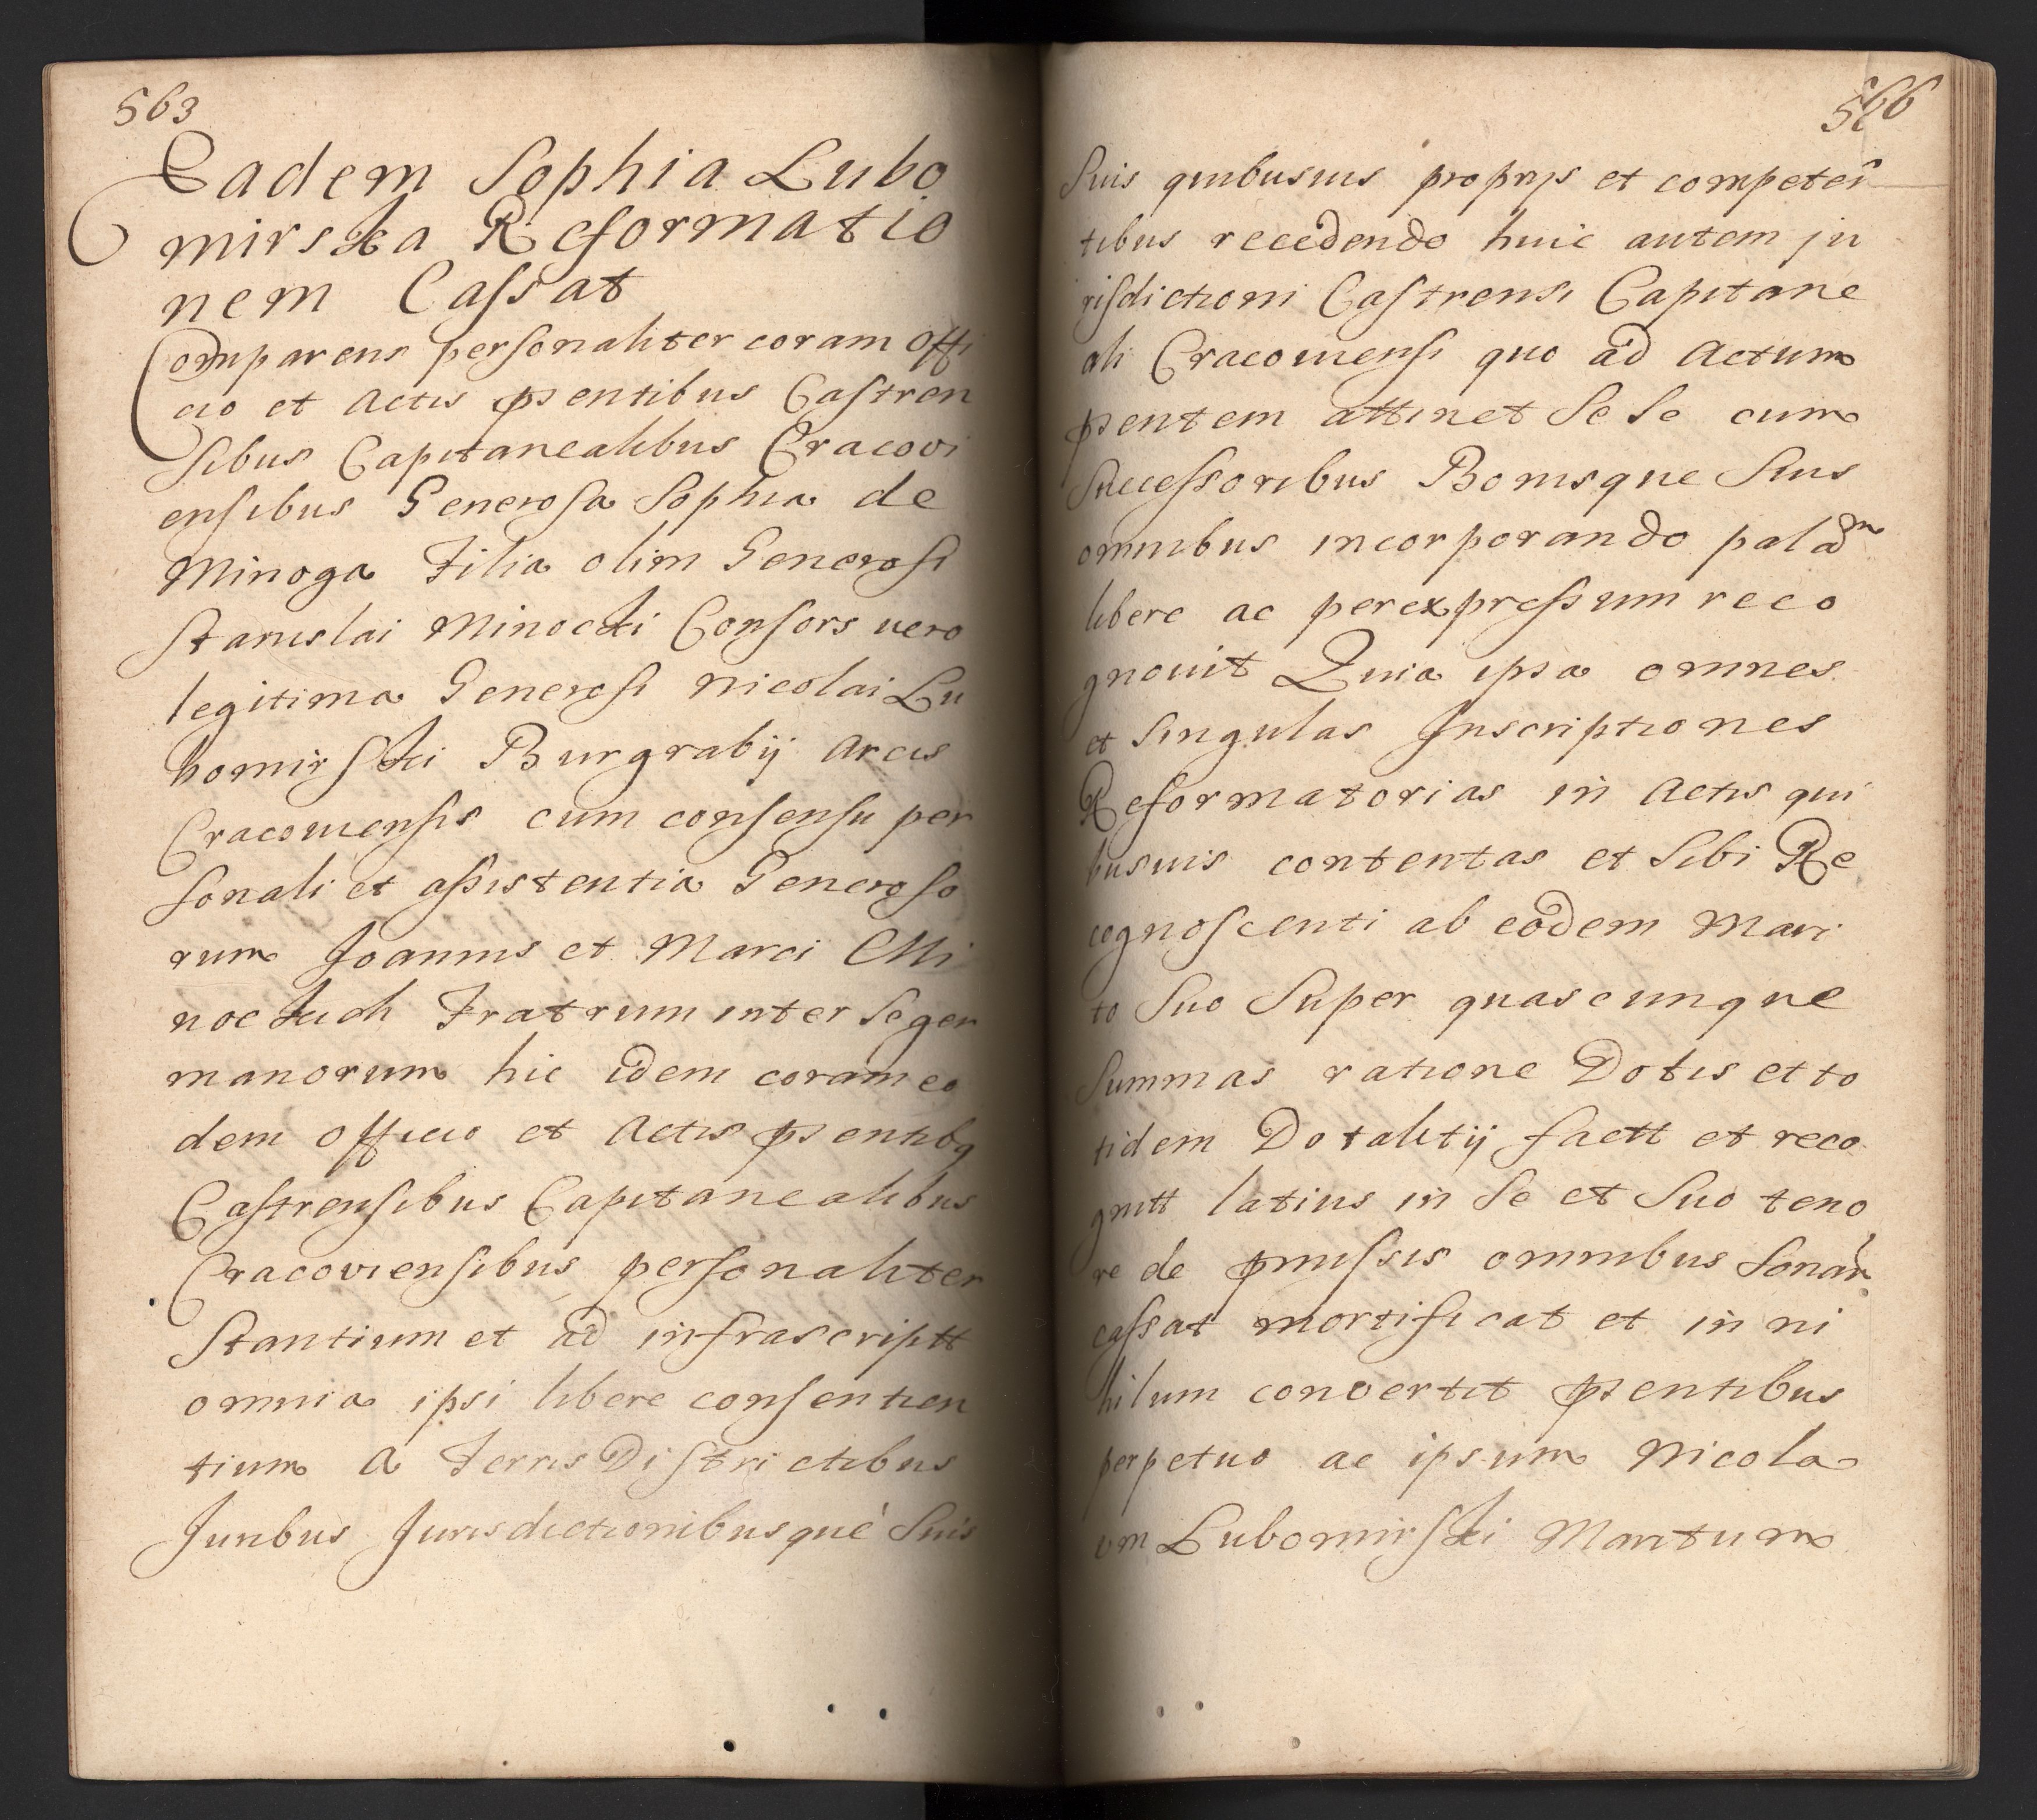 563
Eadem Sophia Lubo
mirska Reformatio
nem Cassat
Comparens personaliter coram Offi
cio et Actis pntentibus Castren
sibus Capitanealibus Cracovi
ensibus Generosa Sophia de
Minoga Filia olim Generosi
Stanislai Minocki Consors uero
legitima Generosi Nicolai Lu
bomirski Burgrabij Arcis
Cracouiensis cum consensu per
sonali et assistentia Generoso
rum Joannis et Marci Mi
nockich Fratrum inter se ger
manorum hic idem coram eo
dem officio et Actis psentibq
Castrensibus Capitanealibus
Cracoviensibus personaliter
Stantium et ad infrascriptt
omnia ipsi libere consentien
tium A Terris Districtibus
Juribus Jurisdictionibusque Suis
566
Suis quibusuis proprijs et competen
tibus recedendo huic autem ju
risdictioni Castrensi Capitane
ali Cracouiensi quo ad Actum
psentem attinet Se Se cum
Successoribus Bonisque Suis
omnibus incorporando palam
libere ac per expressum reco
gnouit Quia ipsa omnes
et Singulas Inscriptiones
Reformatorias in Actis qui
busuis contentas et Sibi Re
cognoscenti ab eodem Mari
to Suo Super quascunque
Summas ratione Dotis et to
tidem Dotalitij factt et reco
gnitt latius in Se et Suo teno
re de pmissis omnibus Sonan
cassat mortificat et in ni
hilum convertit psentibus
perpetuo ac ipsum Nicola
um Lubomirski Maritum